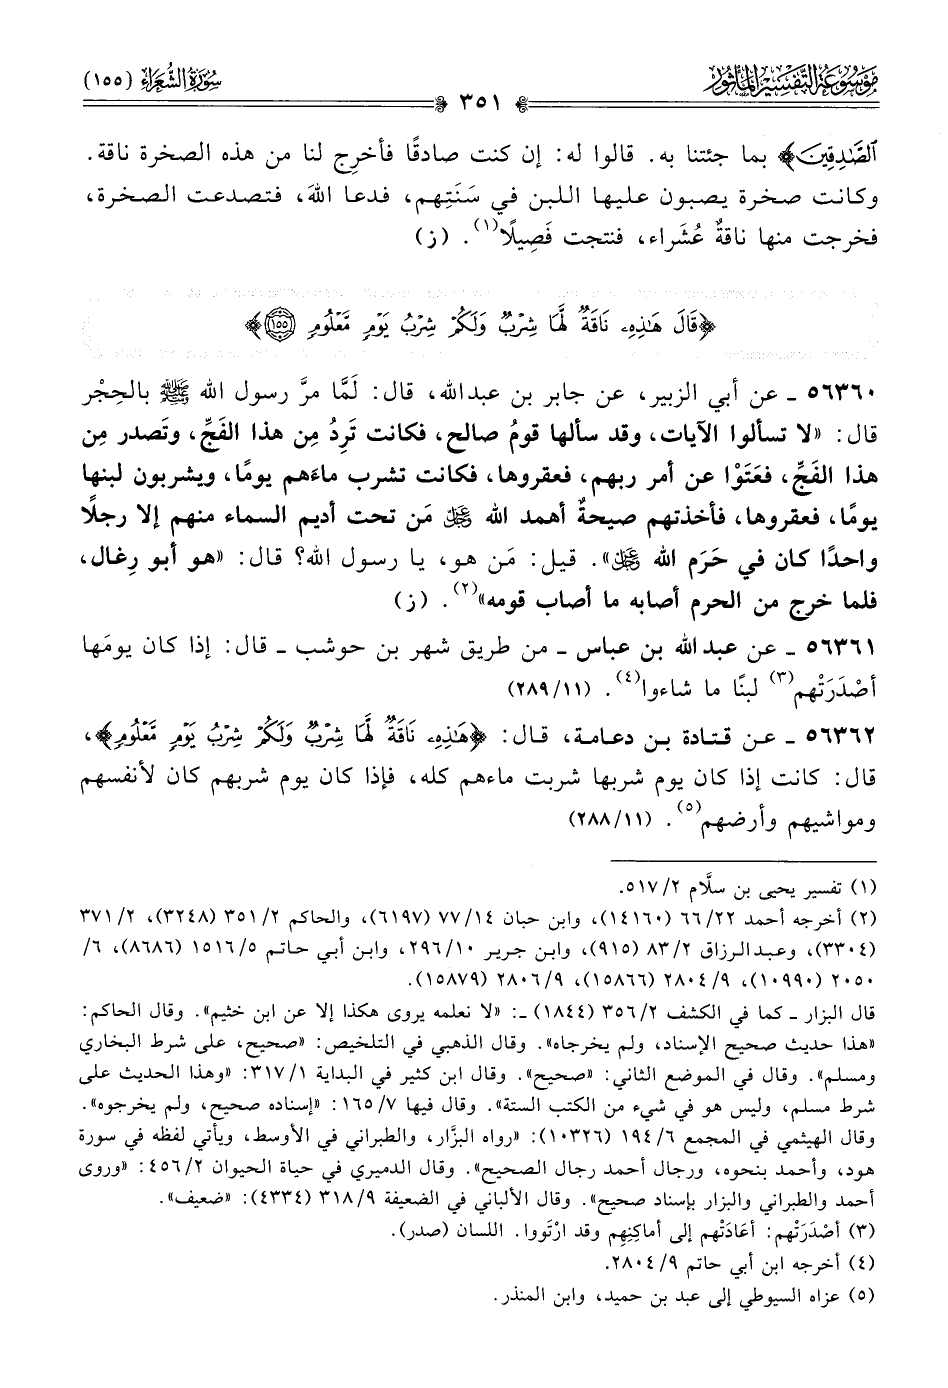 موسوعة التفسير المأثور
سورة الشعراء (١٥٥)
٣٥١
ٱلصَّٰدِقِينَ﴾ بما جئتنا به. قالوا له: إن كنت صادقًا فأخرِج لنا من هذه الصخرة ناقة.
وكانت صخرة يصبون عليها اللبن في سَنَتِهم، فدعا اللهَ، فتصدعت الصخرة،
فخرجت منها ناقةٌ عُشَراء، فنتجت فَصِيلًا(١). (ز)
﴿قَالَ هَٰذِهِۦ نَاقَةٌ لَّهَا شِرْبٌ وَلَكُمْ شِرْبُ يَوْمٍ مَّعْلُومٍ ١٥٥﴾
٥٦٣٦٠ ـ عن أبي الزبير، عن جابر بن عبدالله، قال: لَمَّا مرَّ رسول الله ﷺ بالحِجْر
قال: «لا تسألوا الآيات، وقد سألها قومُ صالح، فكانت تَرِدُ مِن هذا الفَجِّ، وتَصدر مِن
هذا الفَجِّ، فعَتَوْا عن أمر ربهم، فعقروها، فكانت تشرب ماءَهم يومًا، ويشربون لبنها
يومًا، فعقروها، فأخذتهم صيحةٌ أهمد الله ﷻ مَن تحت أديم السماء منهم إلا رجلًا
واحدًا كان في حَرَم الله ﷻ». قيل: مَن هو، يا رسول الله؟ قال: «هو أبو رِغال،
فلما خرج من الحرم أصابه ما أصاب قومه»(٢). (ز)
٥٦٣٦١ ـ عن عبدالله بن عباس ـ من طريق شهر بن حوشب ـ قال: إذا كان يومَها
أصْدَرَتْهم(٣) لبنًا ما شاءوا(٤). (١١/٢٨٩)
٥٦٣٦٢ ـ عن قتادة بن دعامة، قال: ﴿هَٰذِهِۦ نَاقَةٌ لَّهَا شِرْبٌ وَلَكُمْ شِرْبُ يَوْمٍ مَّعْلُومٍ﴾،
قال: كانت إذا كان يوم شربها شربت ماءهم كله، فإذا كان يوم شربهم كان لأنفسهم
ومواشيهم وأرضهم(٥). (١١/٢٨٨)
(١) تفسير يحيى بن سلَّام ٢/٥١٧.
(٢) أخرجه أحمد ٢٢/٦٦ (١٤١٦٠)، وابن حبان ١٤/٧٧ (٦١٩٧)، والحاكم ٢/٣٥١ (٣٢٤٨)، ٢/٣٧١
(٣٣٠٤)، وعبدالرزاق ٢/٨٣ (٩١٥)، وابن جرير ١٠/٢٩٦، وابن أبي حاتم ٥/١٥١٦ (٨٦٨٦)، ٦/
٢٠٥٠ (١٠٩٩٠)، ٩/٢٨٠٤ (١٥٨٦٦)، ٩/٢٨٠٦ (١٥٨٧٩).
قال البزار ـ كما في الكشف ٢/٣٥٦ (١٨٤٤) ـ: «لا نعلمه يروى هكذا إلا عن ابن خثيم». وقال الحاكم:
«هذا حديث صحيح الإسناد، ولم يخرجاه». وقال الذهبي في التلخيص: «صحيح، على شرط البخاري
ومسلم». وقال في الموضع الثاني: «صحيح». وقال ابن كثير في البداية ١/٣١٧: «وهذا الحديث على
شرط مسلم، وليس هو في شيء من الكتب الستة». وقال فيها ٧/١٦٥: «إسناده صحيح، ولم يخرجوه».
وقال الهيثمي في المجمع ٦/١٩٤ (١٠٣٢٦): «رواه البزَّار، والطبراني في الأوسط، ويأتي لفظه في سورة
هود، وأحمد بنحوه، ورجال أحمد رجال الصحيح». وقال الدميري في حياة الحيوان ٢/٤٥٦: «وروى
أحمد والطبراني والبزار بإسناد صحيح». وقال الألباني في الضعيفة ٩/٣١٨ (٤٣٣٤): «ضعيف».
(٣) أصْدَرَتْهم: أعَادَتْهم إلى أماكِنِهم وقد ارْتَووا. اللسان (صدر).
(٤) أخرجه ابن أبي حاتم ٩/٢٨٠٤.
(٥) عزاه السيوطي إلى عبد بن حميد، وابن المنذر.